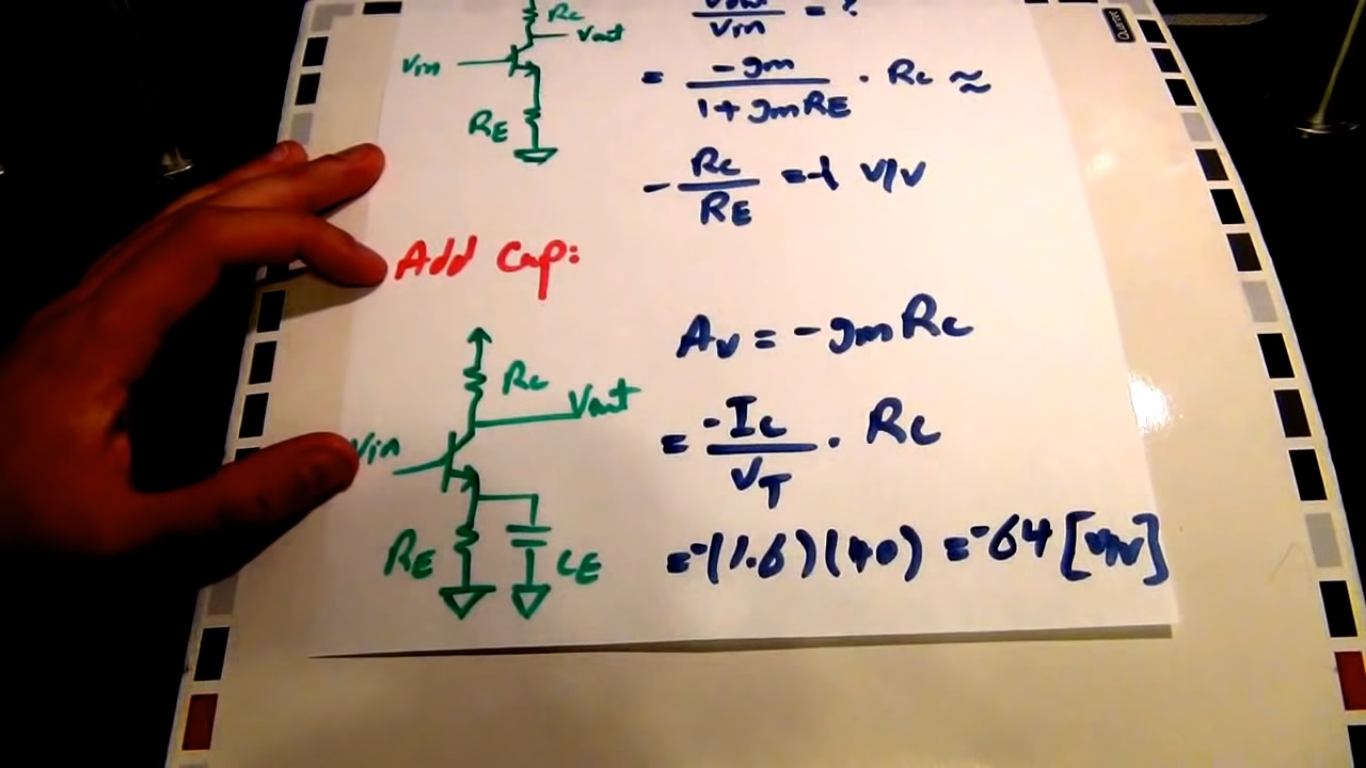 Rc
Vout
Vin
RE
Vout/Vin = ?
= -gm/(1+gmRE) · Rc ≈
-Rc/RE = -1 V/V
Add Cap:
Rc
Vout
Vin
RE
CE
Av = -gmRc
= -Ic/VT · Rc
= -(1.6)(40) = -64 [V/V]